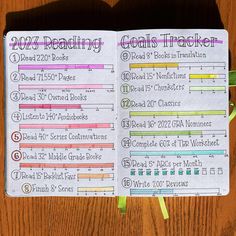 2023 Reading
① Read 220* Books
② Read 71,550* Pages
③ Read 30* Owned Books
④ Listen to 140* Audiobooks
⑤ Read 40* Series Continuations
⑥ Read 32* Middle Grade Books
⑦ Read 15* Backlist Favs
⑧ Finish 8* Series
Goals Tracker
⑨ Read 8* Books in Translation
⑩ Read 15* Nonfictions
⑪ Read 15* Chunksters
⑫ Read 20* Classics
⑬ Read 16* 2022 GRA Nominees
⑭ Complete 60% of TBR Worksheet
⑮ Read 5* ARCs per Month
⑯ Write 200* Reviews